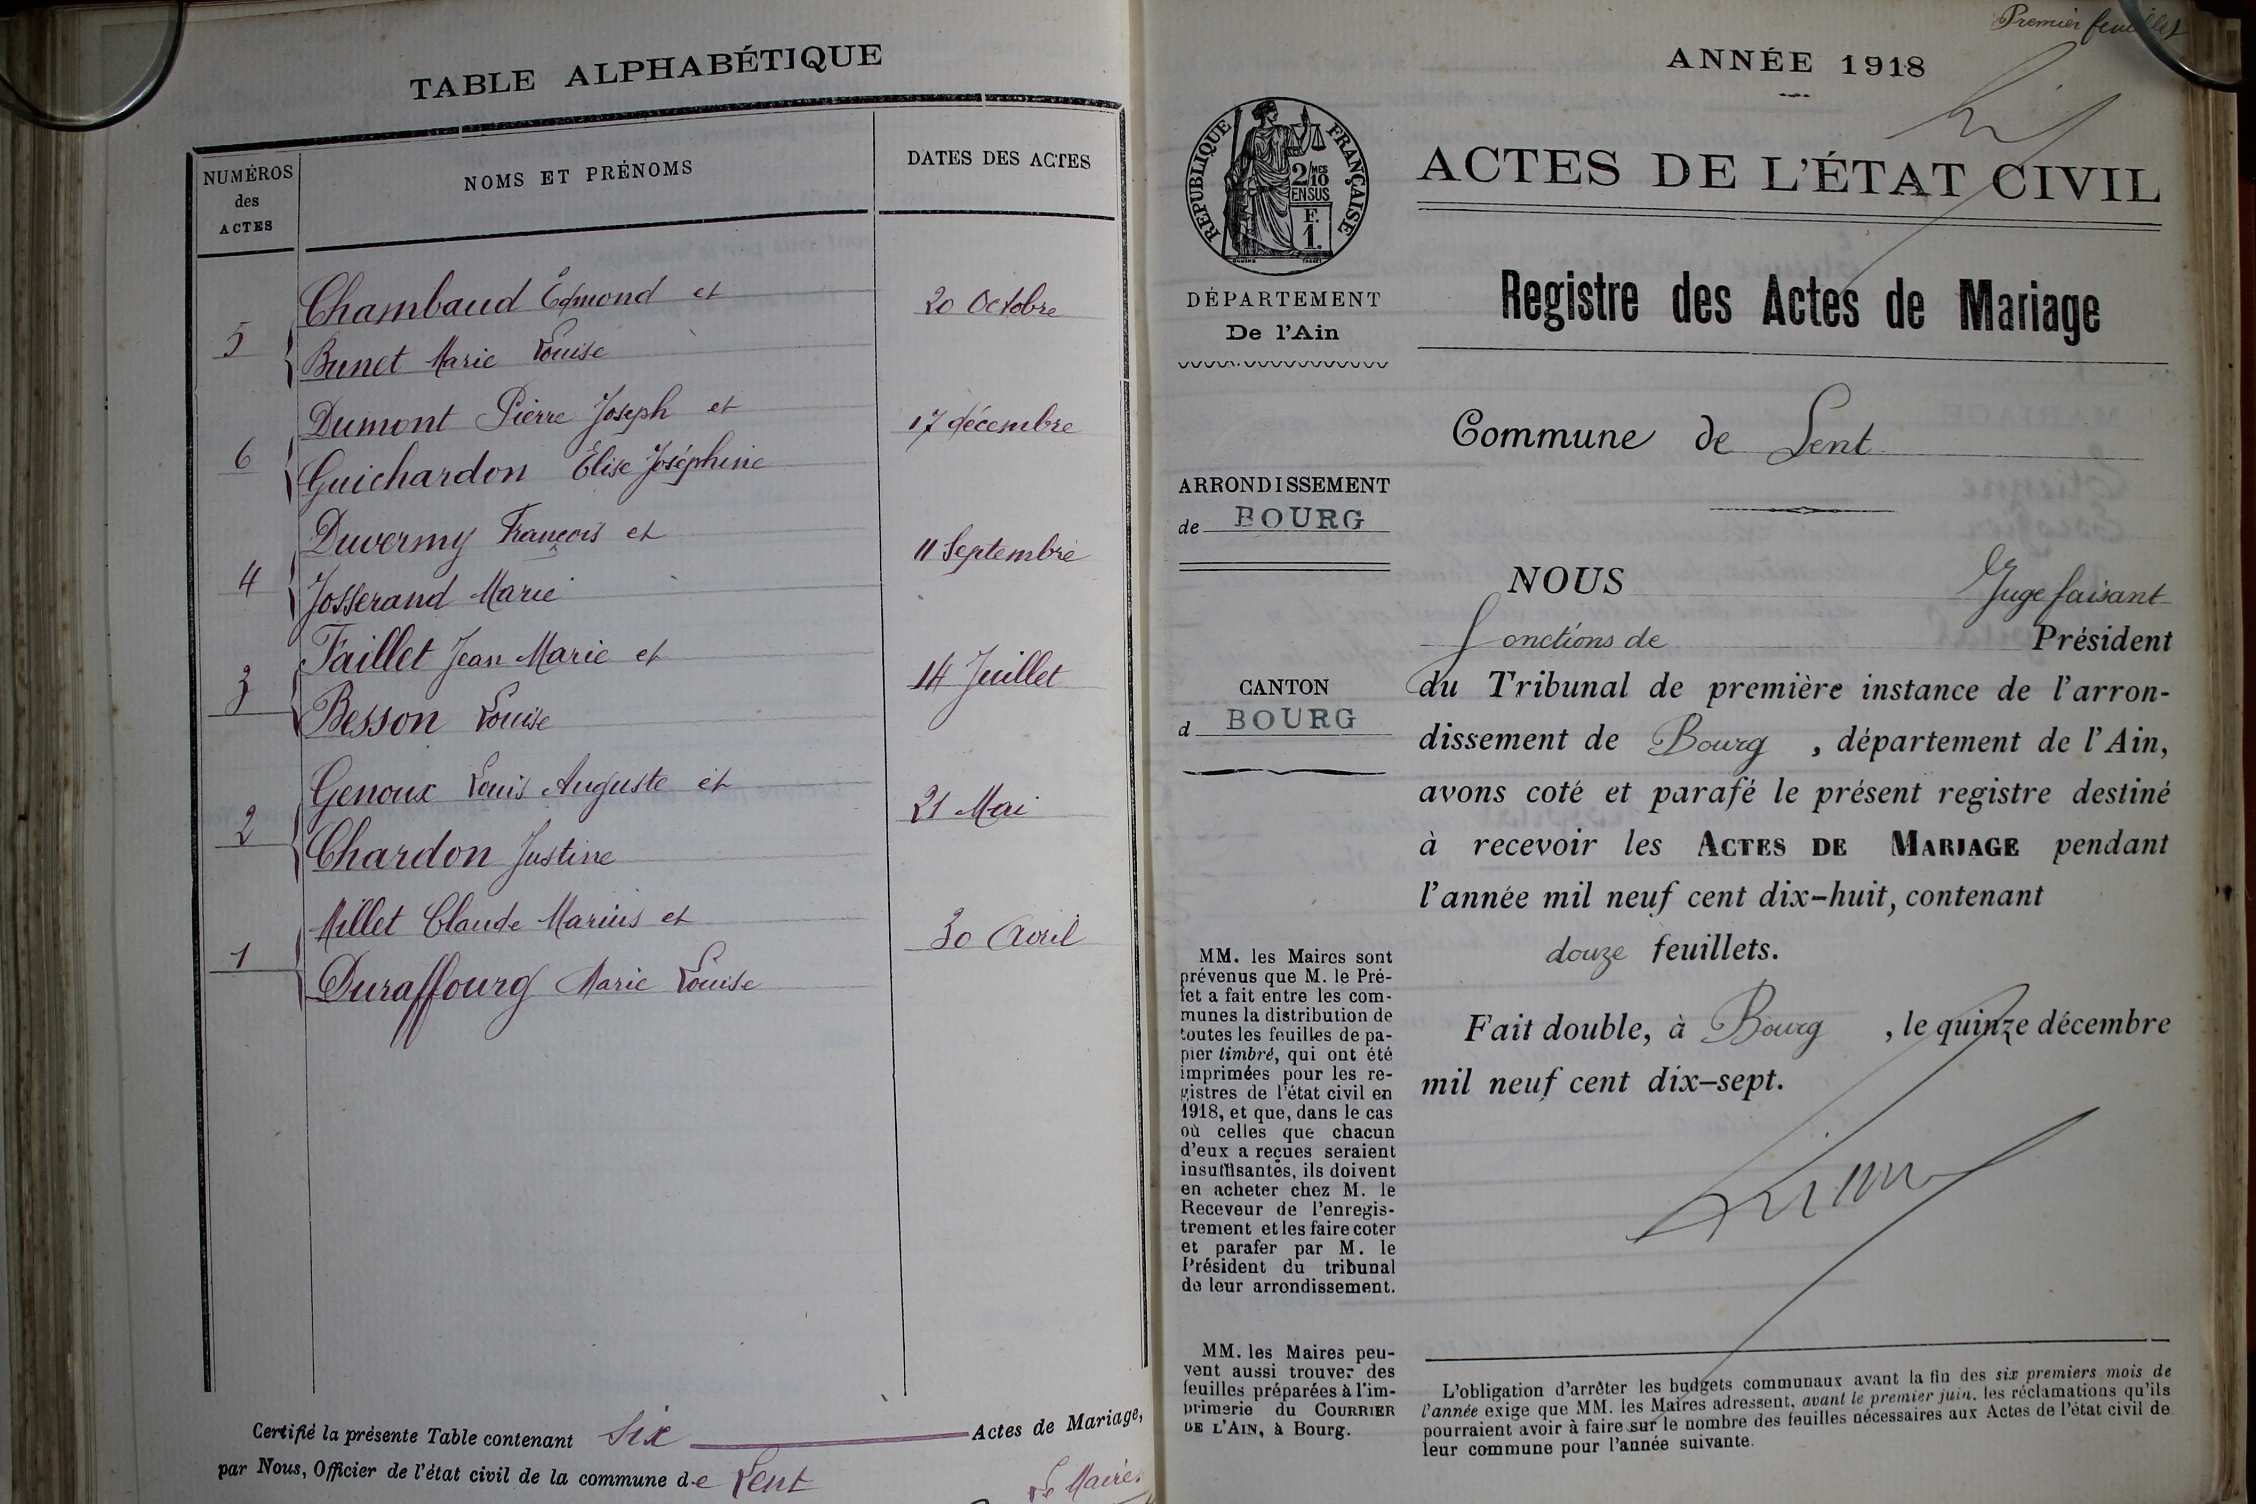 TABLE ALPHABÉTIQUE
NUMÉROS des ACTES
NOMS ET PRÉNOMS
DATES DES ACTES
5
Chambaud Edmond et
20 Octobre
Bunet Marie Louise
6
Dumont Pierre Joseph et
17 décembre
Guichardon Elise Joséphine
4
Duvermy François et
11 Septembre
Josserand Marie
3
Faillet Jean Marie et
14 Juillet
Besson Louise
2
Genoux Louis Auguste et
21 Mai
Chardon Justine
1
Millet Claude Marius et
30 Avril
Duraffourg Marie Louise
Certifié la présente Table contenant six Actes de Mariage,
par Nous, Officier de l'état civil de la commune de Lent
Le Maire.
Premier feuillet
ANNÉE 1918
RÉPUBLIQUE FRANÇAISE
2/10 MES
EN SUS
F.
1.
DÉPARTEMENT
De l'Ain
ARRONDISSEMENT
de BOURG
CANTON
d BOURG
MM. les Maires sont
prévenus que M. le Pré-
fet a fait entre les com-
munes la distribution de
toutes les feuilles de pa-
pier timbré, qui ont été
imprimées pour les re-
gistres de l'état civil en
1918, et que, dans le cas
où celles que chacun
d'eux a reçues seraient
insuffisantes, ils doivent
en acheter chez M. le
Receveur de l'enregis-
trement et les faire coter
et parafer par M. le
Président du tribunal
de leur arrondissement.
MM. les Maires peu-
vent aussi trouver des
feuilles préparées à l'im-
primerie du COURRIER
DE L'AIN, à Bourg.
ACTES DE L'ÉTAT CIVIL
Registre des Actes de Mariage
Commune de Lent
NOUS Juge faisant
fonctions de Président
du Tribunal de première instance de l'arron-
dissement de Bourg, département de l'Ain,
avons coté et parafé le présent registre destiné
à recevoir les ACTES DE MARIAGE pendant
l'année mil neuf cent dix-huit, contenant
douze feuillets.
Fait double, à Bourg, le quinze décembre
mil neuf cent dix-sept.
L'obligation d'arrêter les budgets communaux avant la fin des six premiers mois de
l'année exige que MM. les Maires adressent, avant le premier juin, les réclamations qu'ils
pourraient avoir à faire sur le nombre des feuilles nécessaires aux Actes de l'état civil de
leur commune pour l'année suivante.